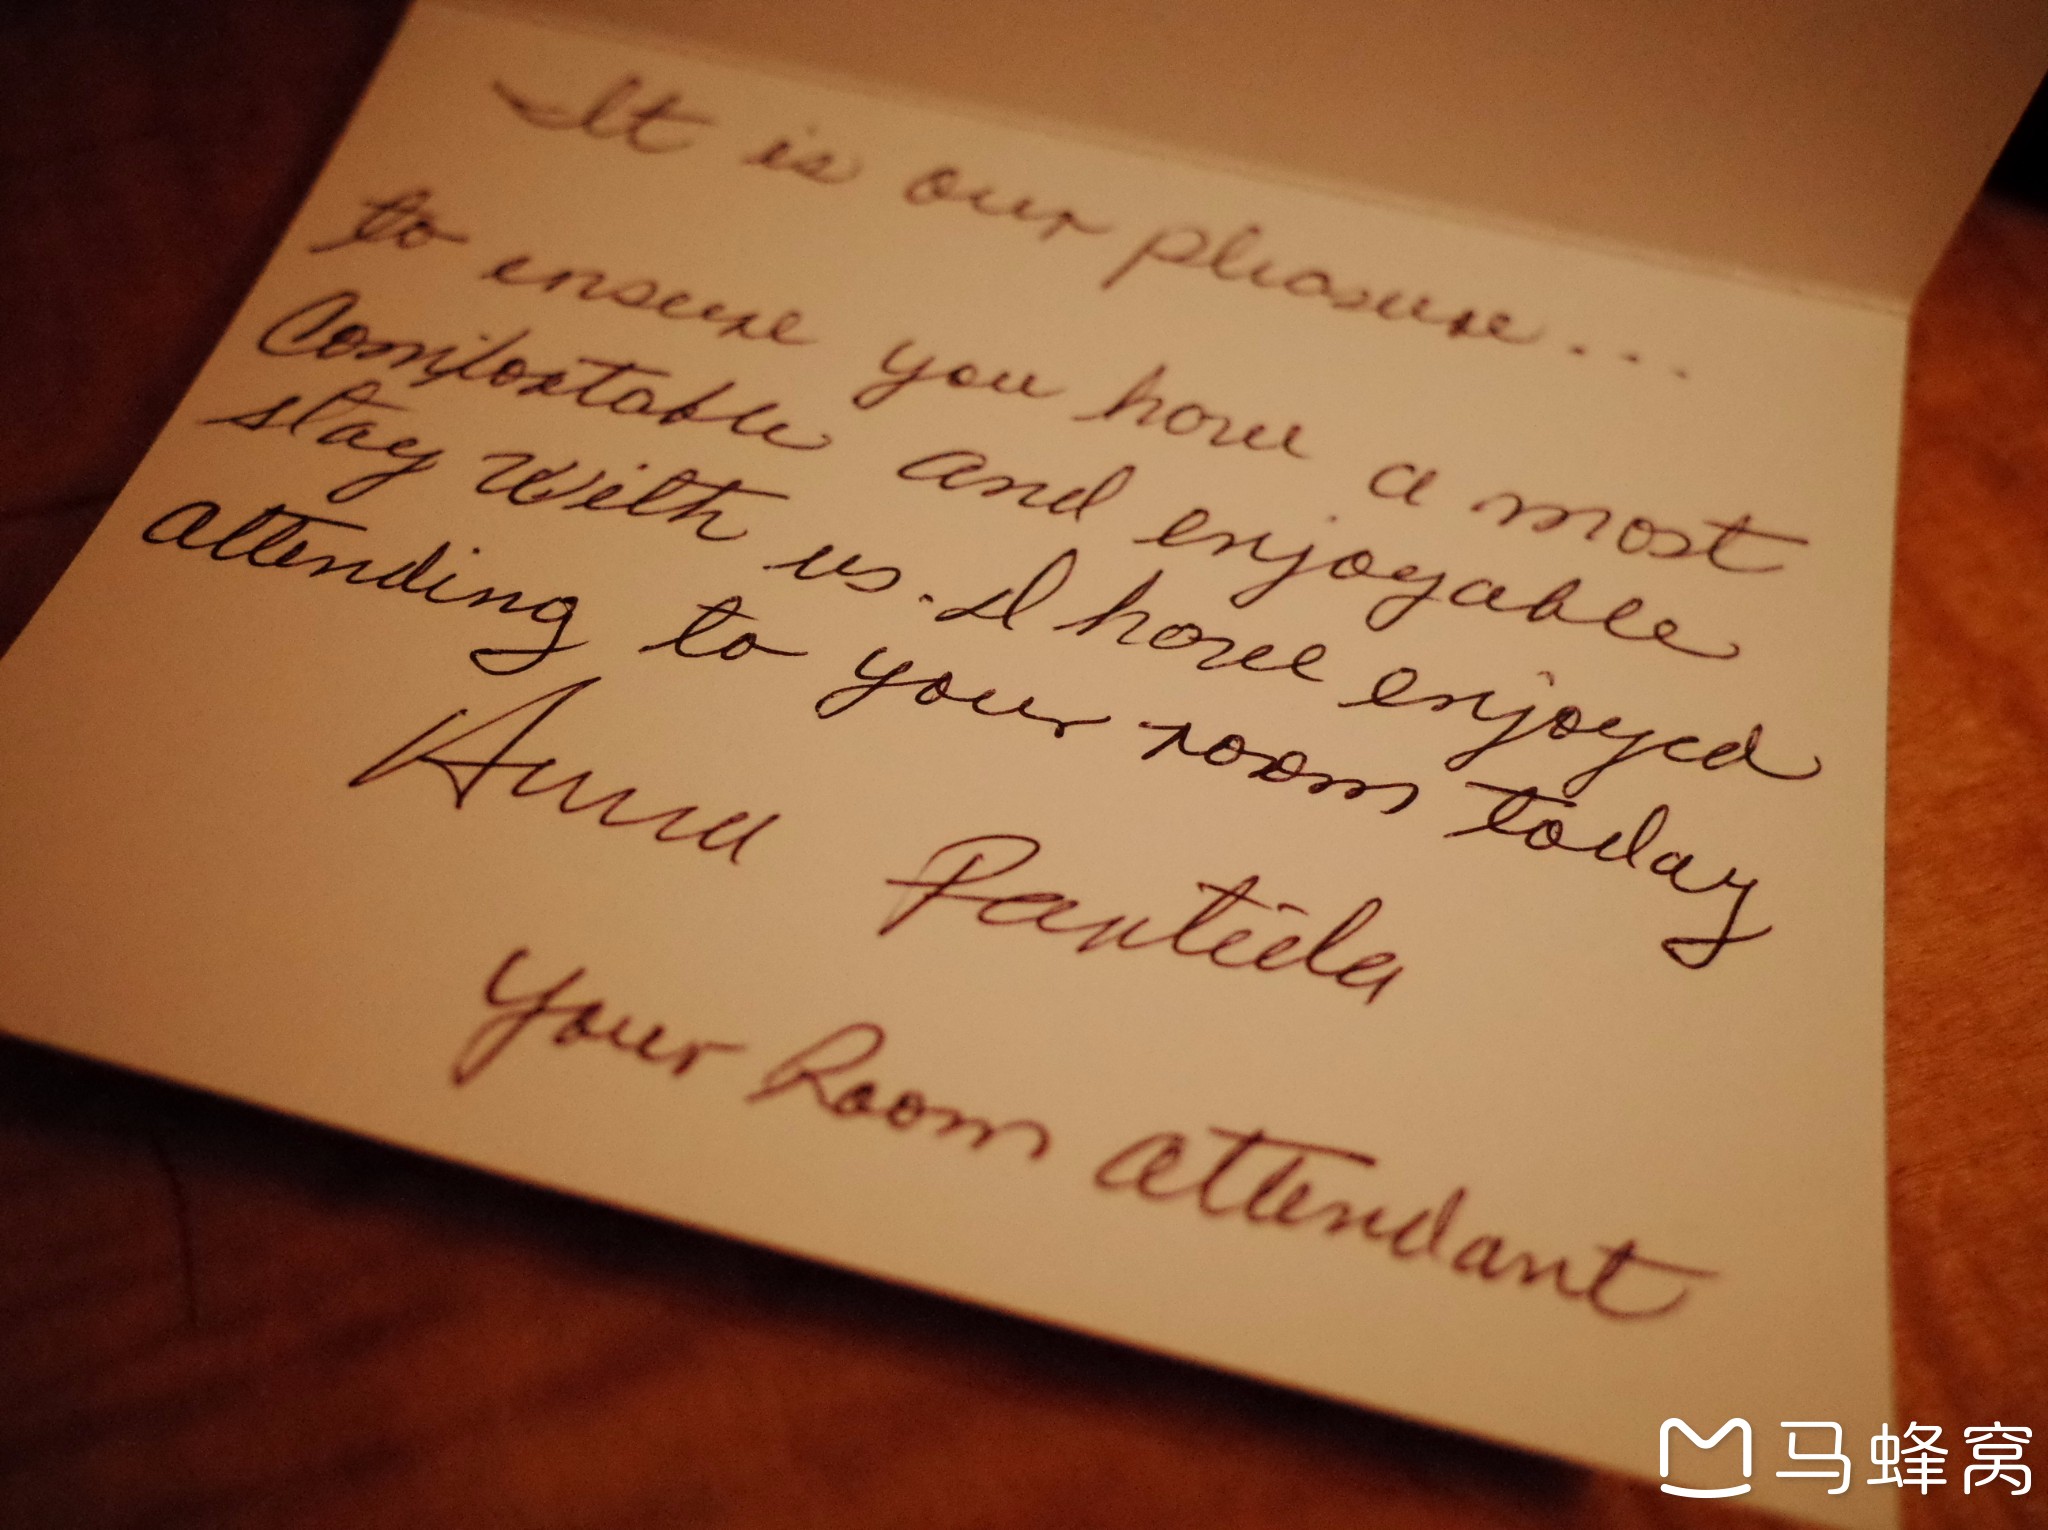 It is our pleasure...
to ensure you have a most
Comfortable and enjoyable
stay with us. I have enjoyed
attending to your room today
Anna
your Room attendant
马蜂窝